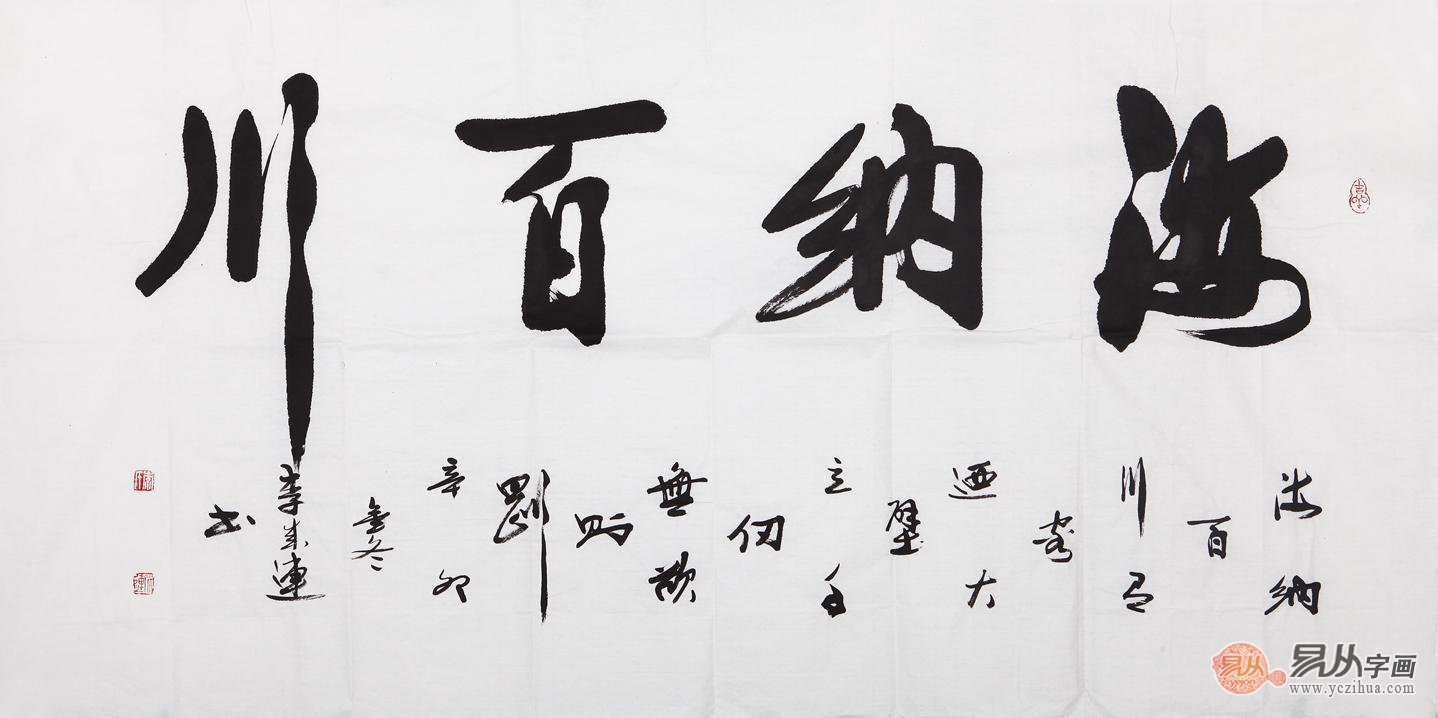 海納百川
海納
百
川有
容
迺大
壁
立千
仞
無欲
則
剛
辛卯
冬
李成連
书
易从字画
www.yczihua.com